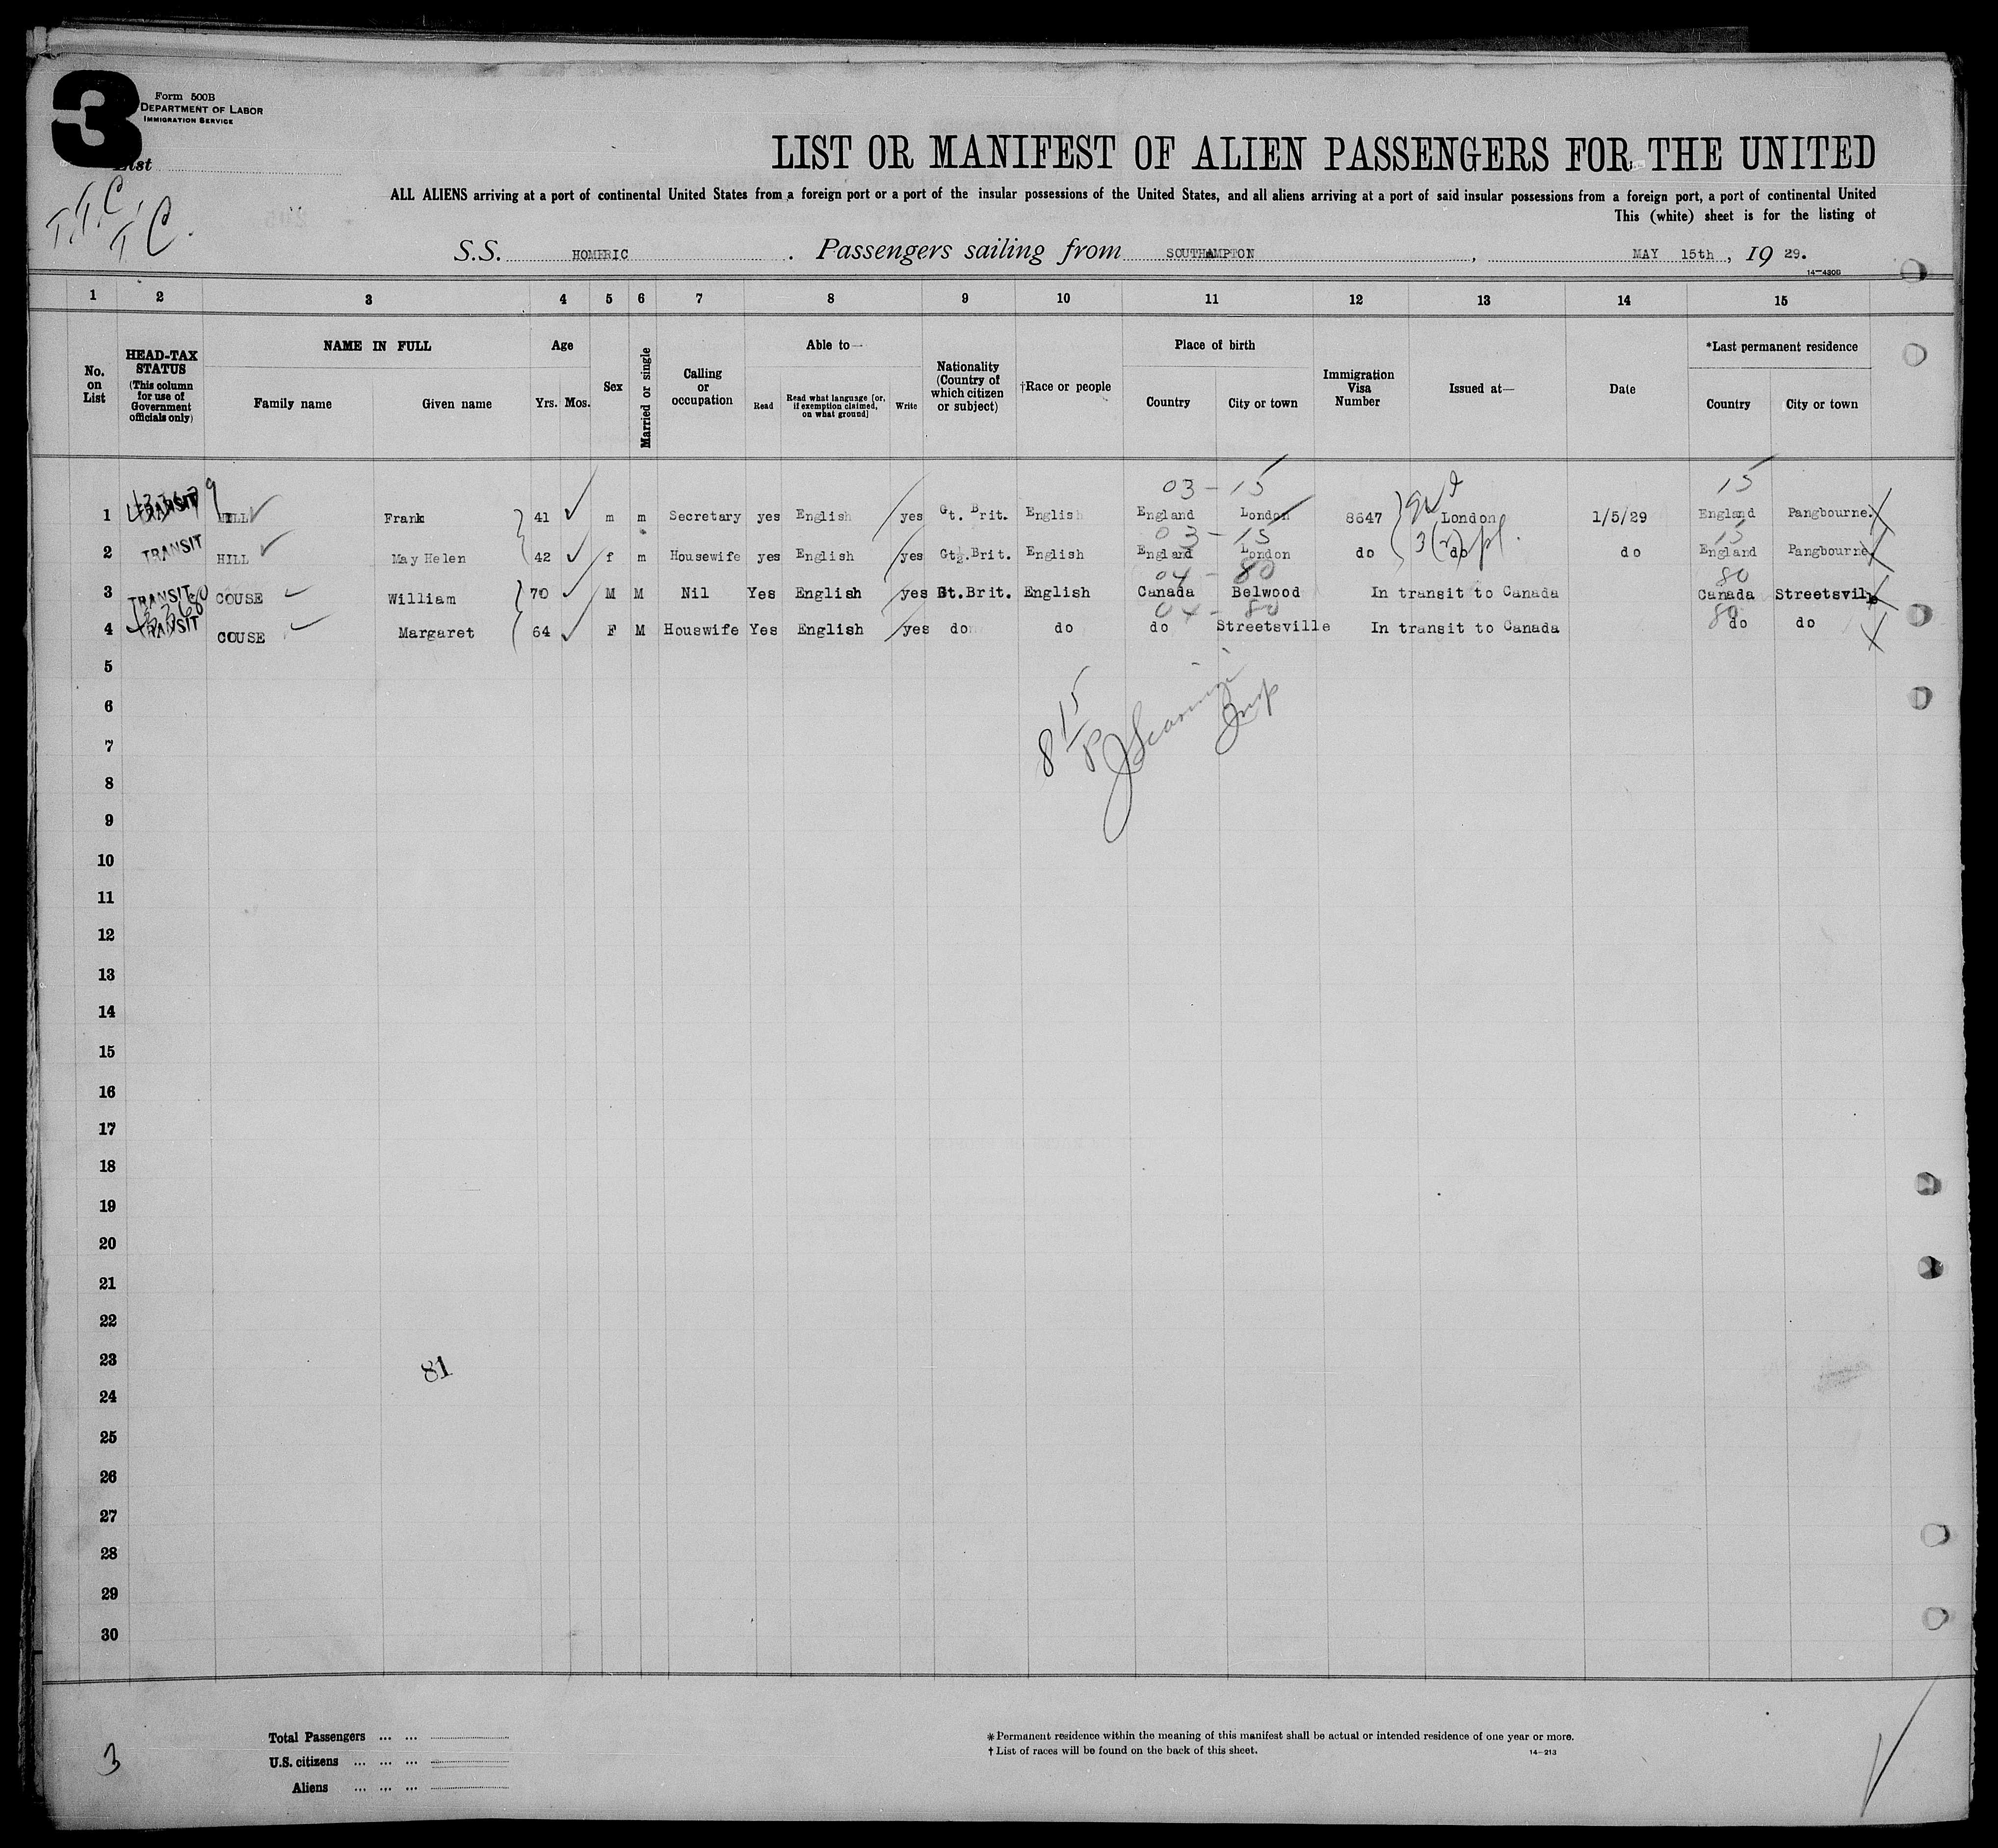 3
Form 500B
DEPARTMENT OF LABOR
IMMIGRATION SERVICE
List
T.T.C.
T C.
LIST OR MANIFEST OF ALIEN PASSENGERS FOR THE UNITED
ALL ALIENS arriving at a port of continental United States from a foreign port or a port of the insular possessions of the United States, and all aliens arriving at a port of said insular possessions from a foreign port, a port of continental United
This (white) sheet is for the listing of
S.S. HOMERIC. Passengers sailing from SOUTHAMPTON, MAY 15th, 19 29.
14-430B
1 2 3 4 5 6 7 8 9 10 11 12 13 14 15
No. on List
HEAD-TAX STATUS (This column for use of Government officials only)
NAME IN FULL
Family name Given name
Age
Yrs. Mos.
Sex
Married or single
Calling or occupation
Able to—
Read Read what language [or, if exemption claimed, on what ground] Write
Nationality (Country of which citizen or subject)
†Race or people
Place of birth
Country City or town
Immigration Visa Number
Issued at—
Date
*Last permanent residence
Country City or town
03-15 15
1 TRANSIT HILL Frank 41 m m Secretary yes English yes Gt. Brit. English England London 8647 London 1/5/29 England Pangbourne.
03-15 15
2 TRANSIT HILL May Helen 42 f m Housewife yes English yes Gt. Brit. English England London do do do England Pangbourne
04-80 80
3 TRANSIT COUSE William 70 M M Nil Yes English yes Gt.Brit. English Canada Belwood In transit to Canada Canada Streetsville
04-80 80
4 TRANSIT COUSE Margaret 64 F M Houswife Yes English yes do do do Streetsville In transit to Canada do do
5
6
7
8 15
Insp
8
9
10
11
12
13
14
15
16
17
18
19
20
21
22
23
81
24
25
26
27
28
29
30
Total Passengers ... ...
U.S. citizens ... ... ...
Aliens ... ... ...
3
*Permanent residence within the meaning of this manifest shall be actual or intended residence of one year or more.
†List of races will be found on the back of this sheet.
14-213